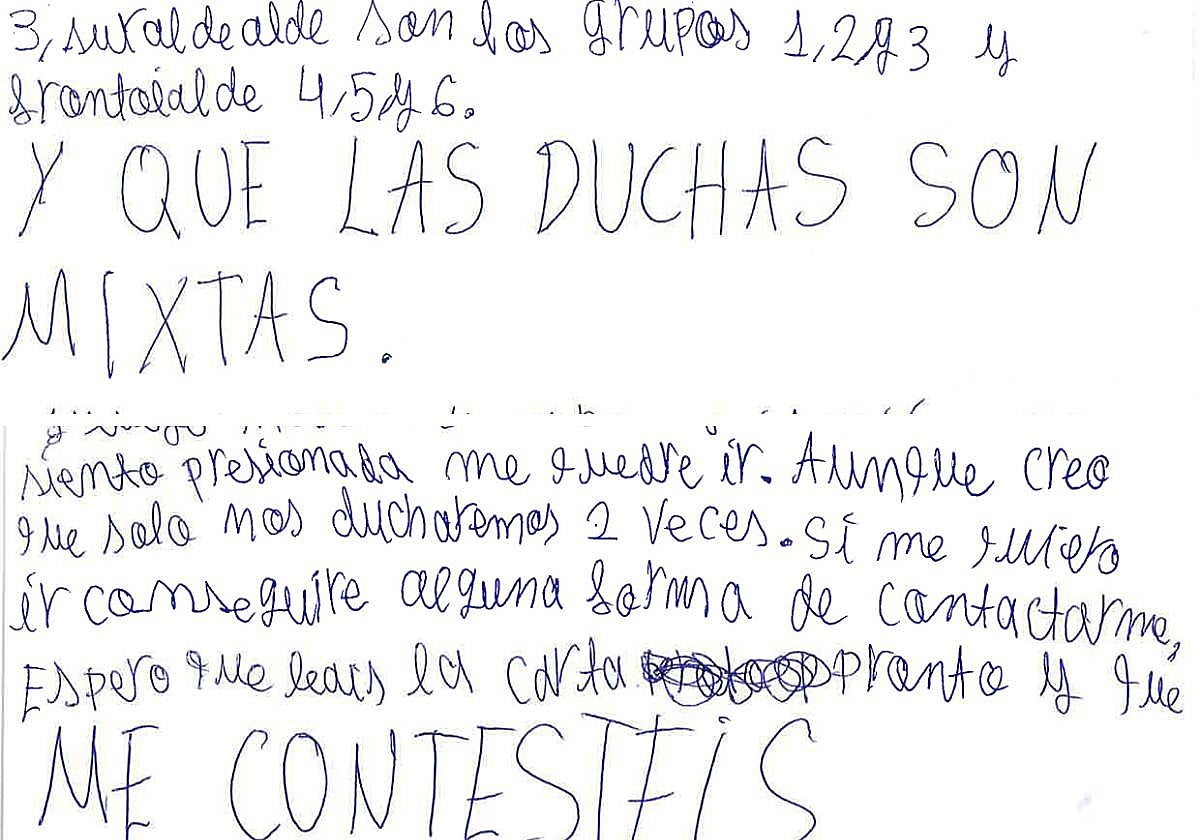 3, sutaldealde son los grupos 1,2y3 y
frontoialde 4,5y6.
Y QUE LAS DUCHAS SON
MIXTAS.
siento presionada me quedre ir. Aunque creo
que solo nos ducharemos 2 veces. Si me quiero
ir conseguire alguna forma de contactarme,
Espero que leais la carta pronto y que
ME CONTESTEIS